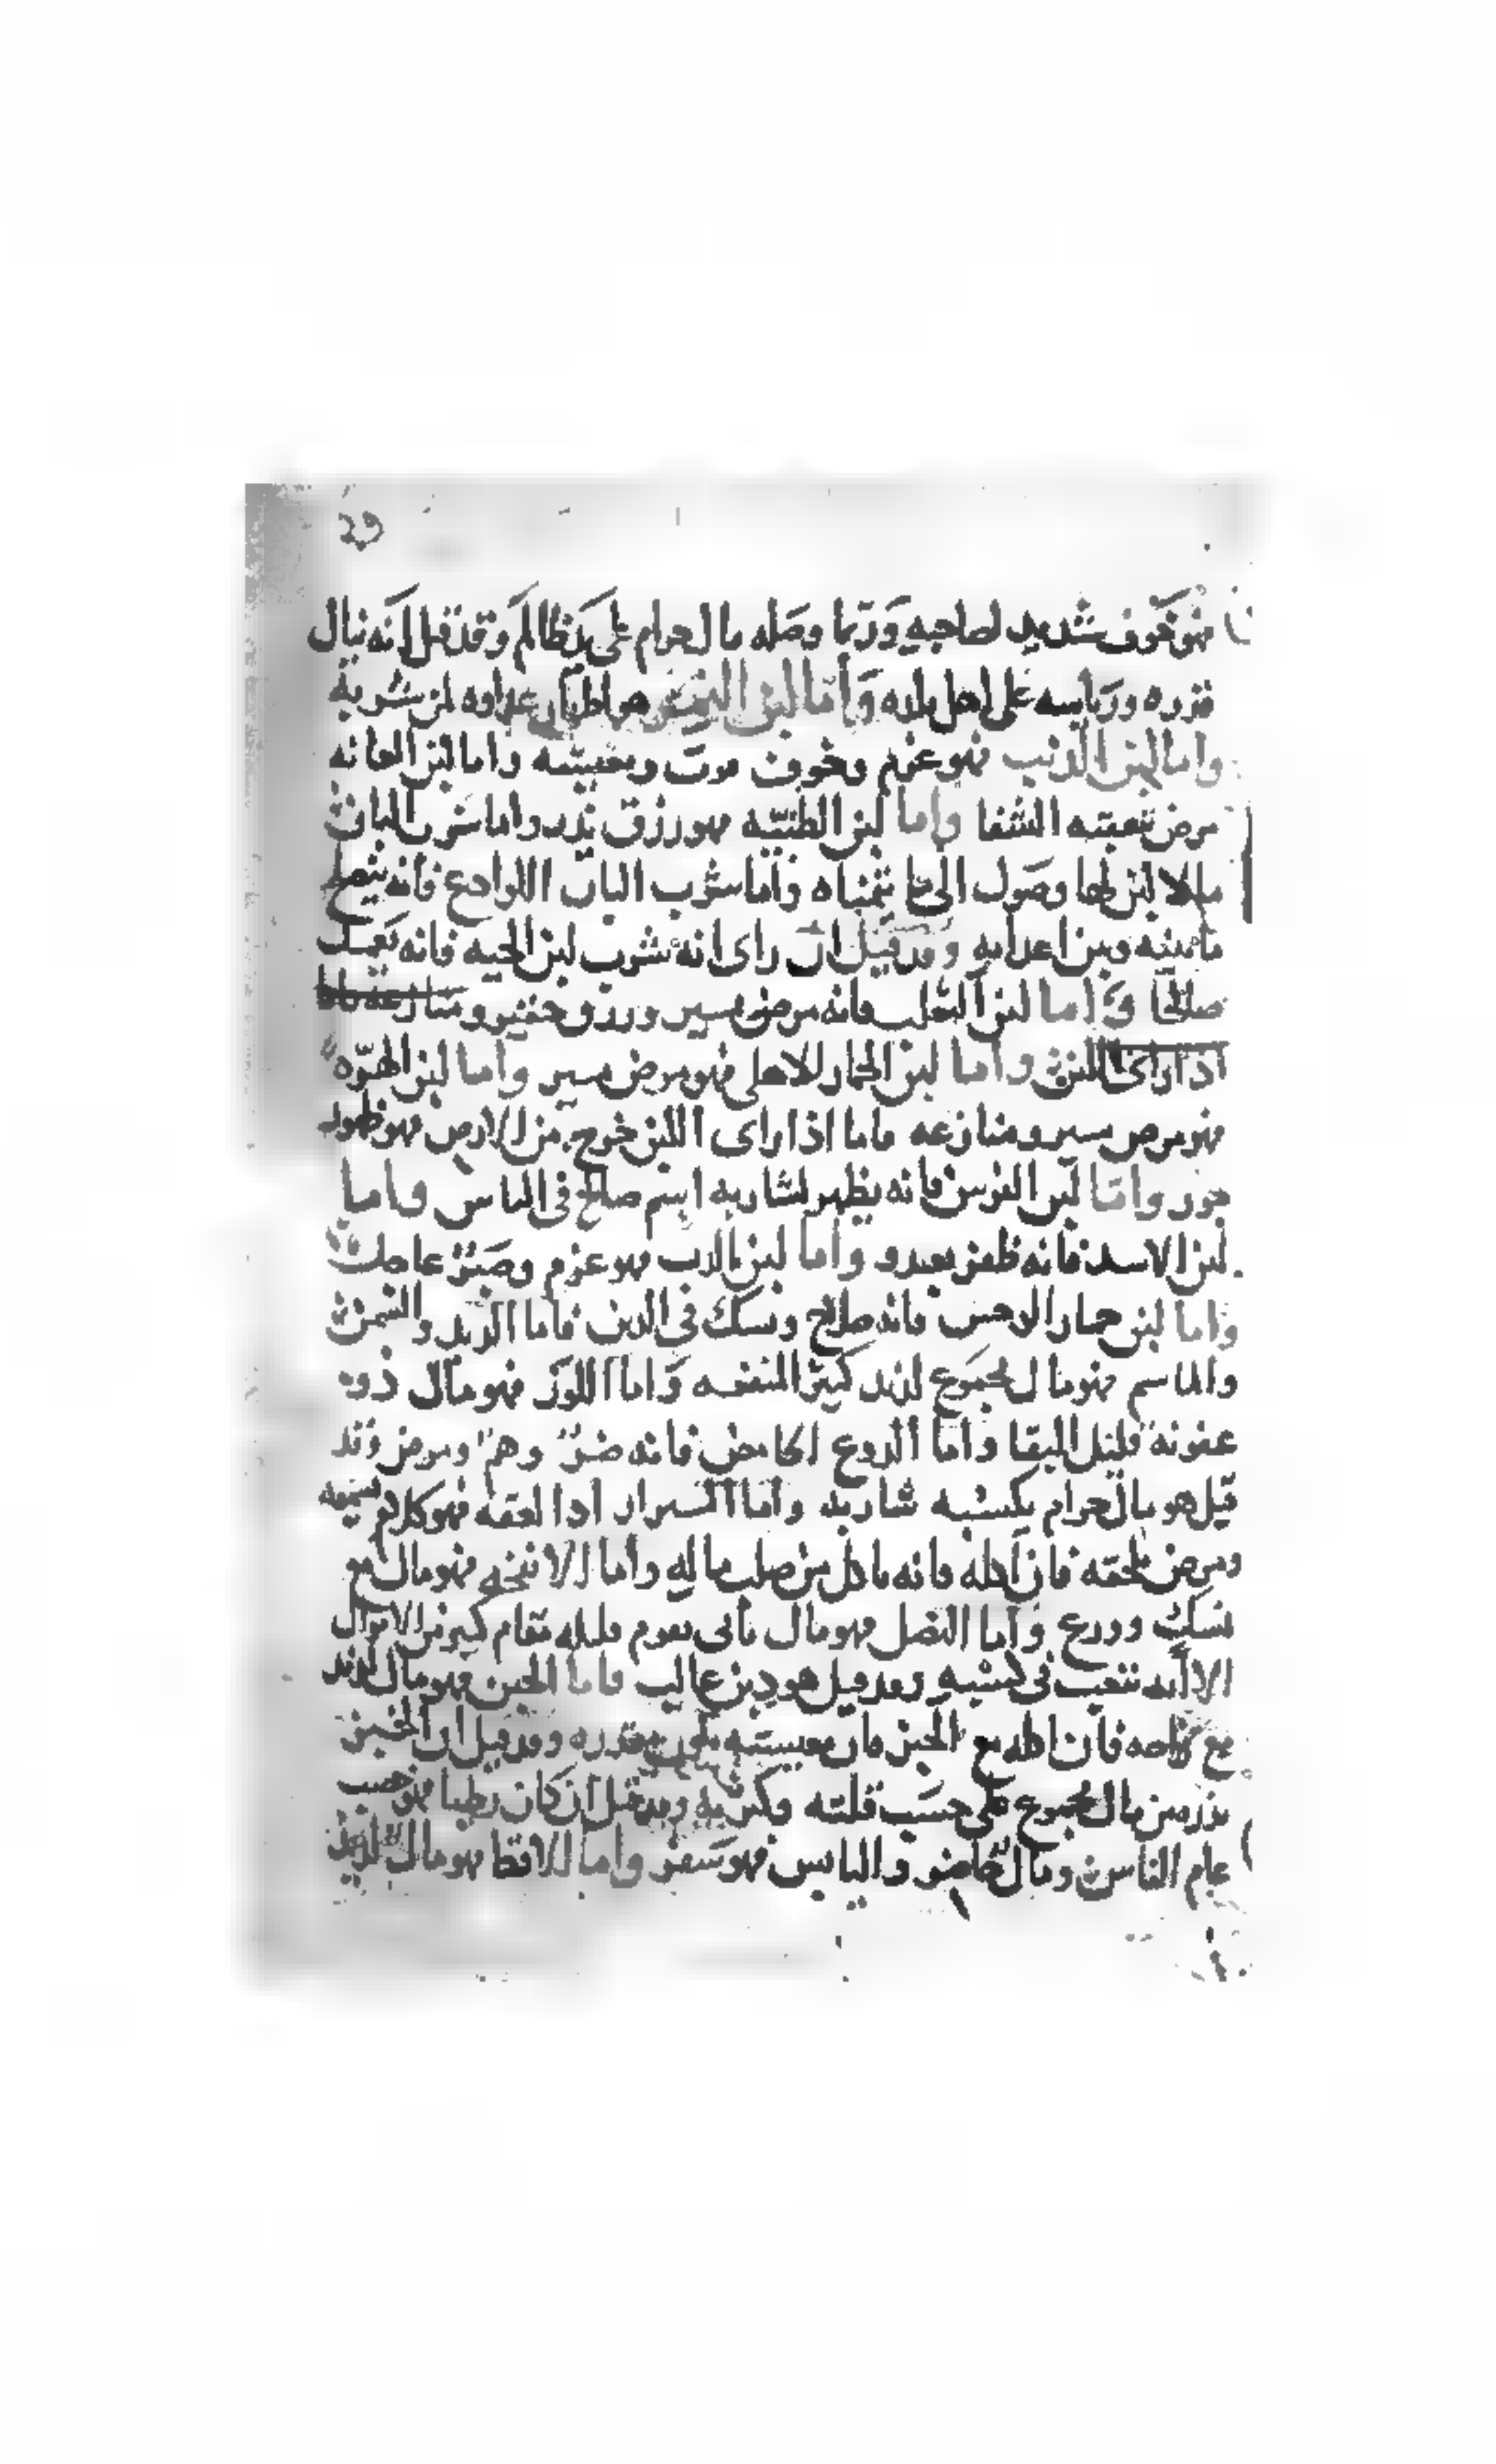 29
فهو خوف شديد لصاحبه وربما وصله مال حرام على يد ظالم وقد قيل انه ينال
قدره ورياسه على اهل بلده وأما لبن النمر هو اظهار عداوه لمن شربه
واما لبن الذئب فهو غرم وخوف موت ومصيبته واما لبن العانه
مرض تعقبه الشفا واما لبن الظبيه فهو رزق نزر واما شرب البان
مالا لبن لها وصول الى ما يتمناه واما شرب البان اللوادع فانه يصلح
ما بينه وبين اعدايه وقد قيل ان راى انه شرب لبن الحيه فانه يعمل
صالحا واما لبن الثعلب فانه مرض يسير ورزق حقير ومنازعه
اذا راى اللبن واما لبن الحمار الاهلى فهو مرض يسير واما لبن الهره
فهو مرض يسير ومنازعه فاما اذا راى اللبن خرج من الارض فهو ظهور
جور واما لبن الفرس فانه يظهر لشاربه اسم صالح فى الناس واما
لبن الاسد فانه ظفر بعدو واما لبن الدب فهو غرم وضر عاجل
واما لبن حمار الوحش فانه صلاح ونسك فى الدين فاما الزبد والسمن
فهو مال مجموع لذيذ كثير المنفعه واما اللوز فهو مال ذو
عفونه قليل البقا واما الدوع الحامض فانه ضر وهم ومرض وقد
قيل هو مال حرام يكسبه شاربه واما الشيراز اذا لعقه فهو كلام يسمعه
ومرض يلحقه فان اكله فانه ياكل من صلب ماله واما الانفحه فهو مال مع
نسك وورع واما المصل فهو مال نامى يقوم قليله مقام كثير من الاموال
الا انه تعب فى كسبه وقد قيل هو دين غالب فاما الجبن فهو مال لذيذ
مع راحه فان اكله مع الخبز فان معيشته بقدره وقد قيل ان الجبن
بدره من مال مجموع على حسب قلته وكثرته وقد قيل ان كان رطبا فهو خصب
عام الناس ومال حاضر واليابس فهو سفر واما الاقط فهو مال لذيذ